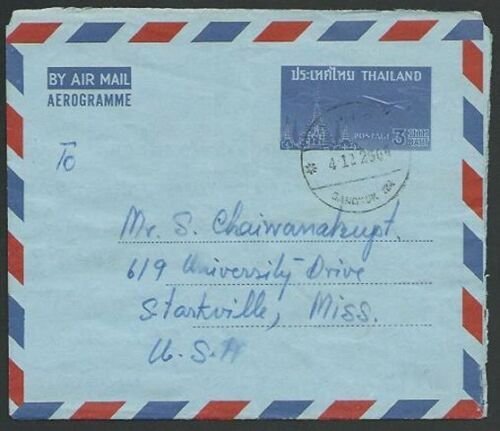 BY AIR MAIL
AEROGRAMME
ประเทศไทย THAILAND
POSTAGE 3 บาท BAHT
4.12.2504
BANGKOK
To
Mr. S. Chaiwanakupt.
619 University Drive
Starkville, Miss.
U.S.A